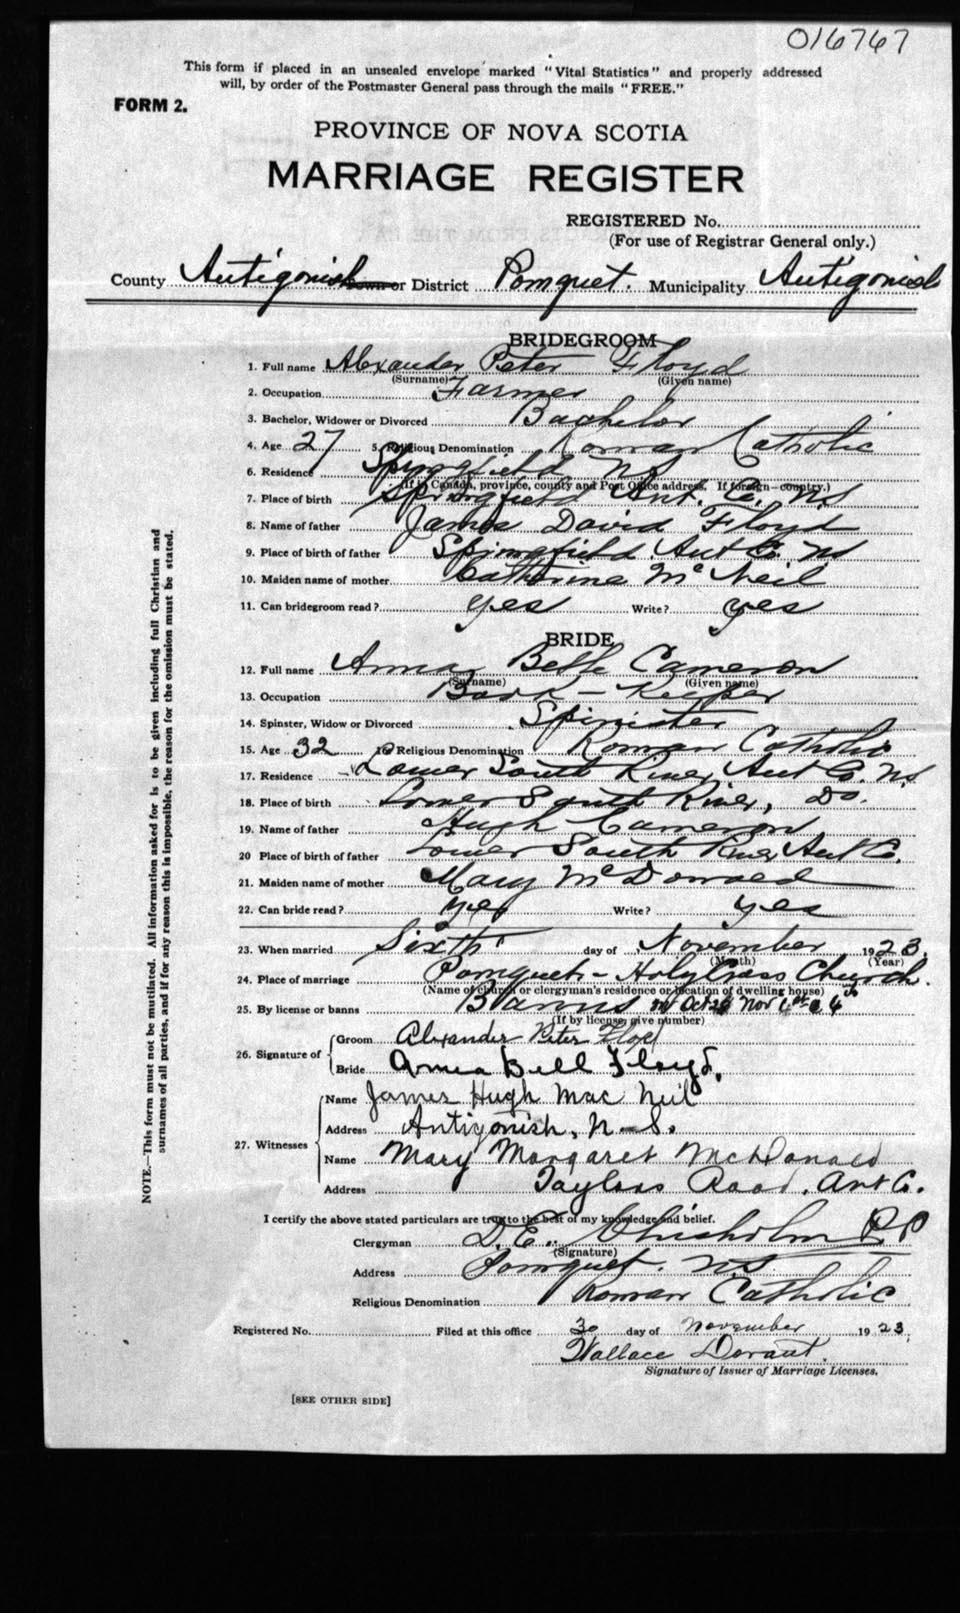 016767
This form if placed in an unsealed envelope marked "Vital Statistics" and properly addressed
will, by order of the Postmaster General pass through the mails "FREE."
FORM 2.
PROVINCE OF NOVA SCOTIA
MARRIAGE REGISTER
REGISTERED No.
(For use of Registrar General only.)
County Antigonish Town or District Pomquet. Municipality Antigonish
BRIDEGROOM
1. Full name Alexander Peter Floyd
(Surname) (Given name)
2. Occupation Farmer
3. Bachelor, Widower or Divorced Bachelor
4. Age 27 5. Religious Denomination Roman Catholic
6. Residence Springfield NS
(If in Canada, province, county and Post Office address. If foreign—country.)
7. Place of birth Springfield Ant. Co. NS
8. Name of father James David Floyd
9. Place of birth of father Springfield Ant Co. NS
10. Maiden name of mother Catherine McNeil
11. Can bridegroom read? yes Write? yes
BRIDE
12. Full name Anna Belle Cameron
(Surname) (Given name)
13. Occupation Book-Keeper
14. Spinster, Widow or Divorced Spinister
15. Age 32 16 Religious Denomination Roman Catholic
17. Residence Lower South River, Ant Co. NS
18. Place of birth Lower South River, Do.
19. Name of father Hugh Cameron
20 Place of birth of father Lower South River Ant Co.
21. Maiden name of mother Mary McDonald
22. Can bride read? yes Write? yes
23. When married Sixth day of November 1923.
(Month) (Year)
24. Place of marriage Pomquet - Holy Cross Church.
(Name of church or clergyman's residence or location of dwelling house)
25. By license or banns Banns Oct 28 Nov 4th
(If by license, give number)
26. Signature of Groom Alexander Peter Floyd
Bride Anna Bell Floyd.
27. Witnesses Name James Hugh Mac Neil
Address Antigonish, N-S.
Name Mary Margaret McDonald
Address Taylors Road, Ant Co.
I certify the above stated particulars are true to the best of my knowledge and belief.
Clergyman D.E. Chisholm PP
(Signature)
Address Pomquet. NS
Religious Denomination Roman Catholic
Registered No. Filed at this office 30 day of November 1923.
Wallace
Signature of Issuer of Marriage Licenses.
[SEE OTHER SIDE]
NOTE.—This form must not be mutilated. All information asked for is to be given including full Christian and
surnames of all parties, and if for any reason this is impossible, the reason for the omission must be stated.